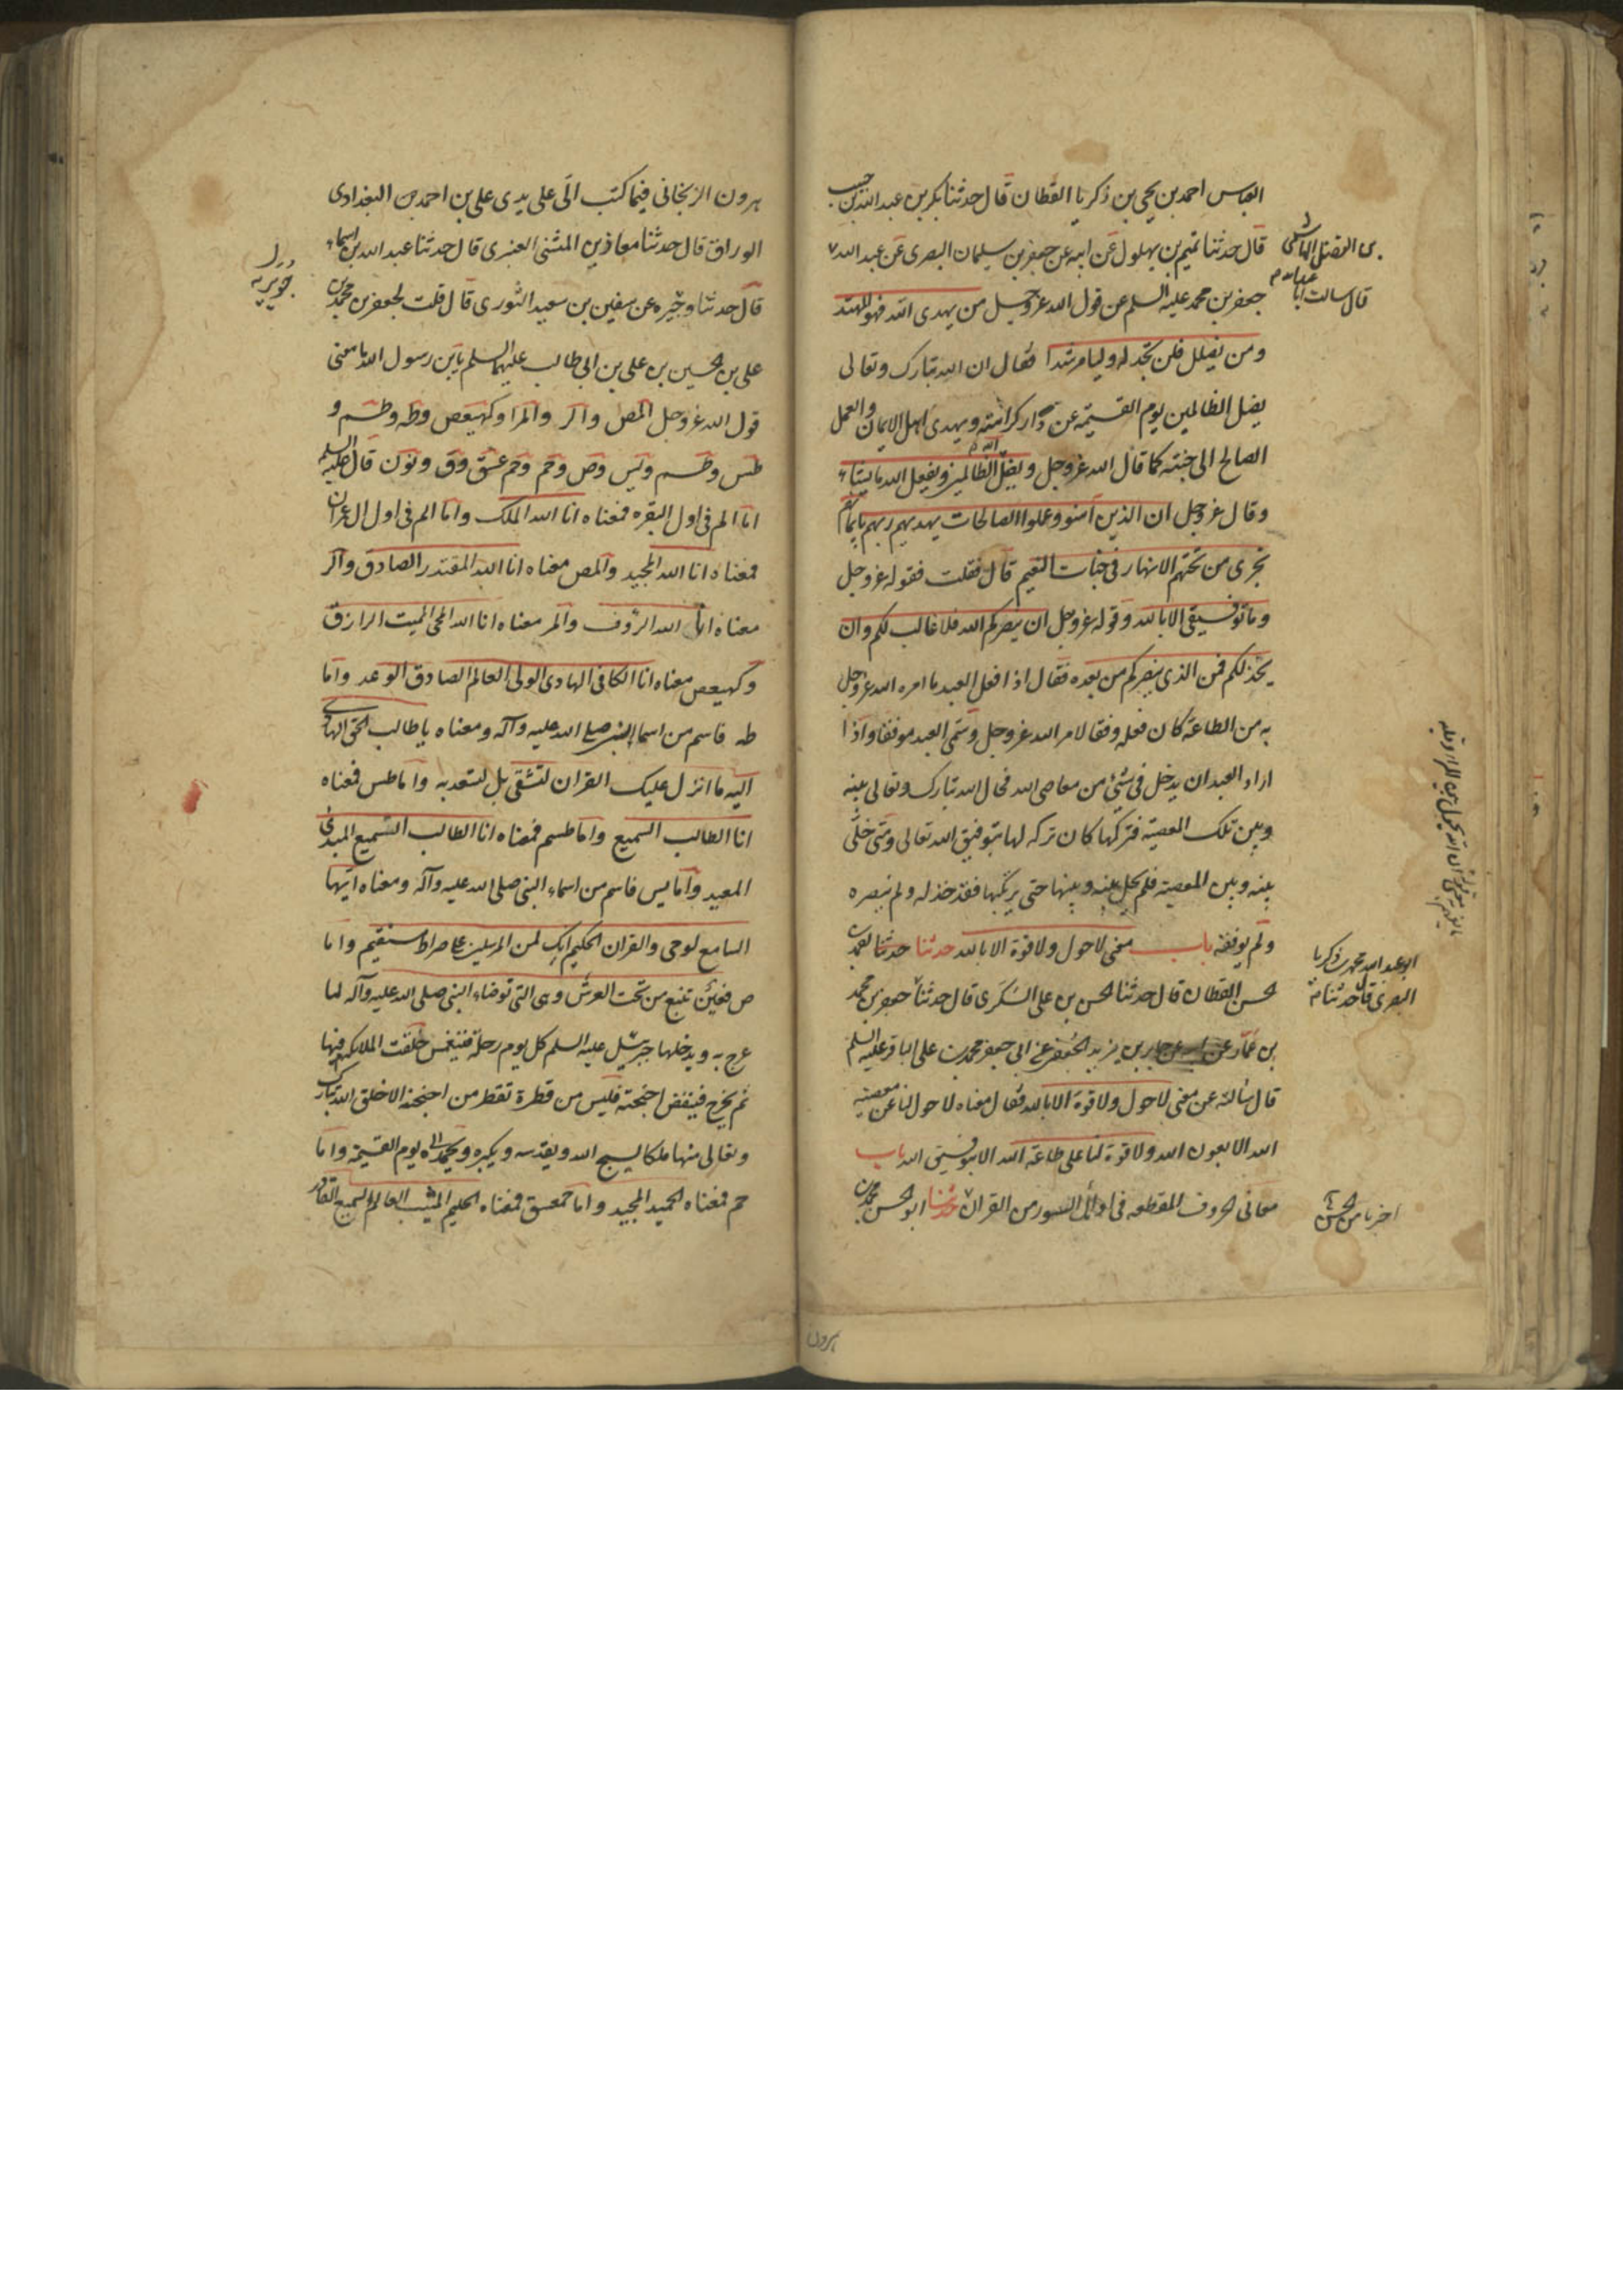 العباس احمد بن يحيى بن زكريا القطان قال حدثنا بكر بن عبد الله بن حبيب
قال حدثنا تميم بن بهلول عن ابيه عن جعفر بن سليمان البصرى عن عبد الله
بن الفضل الهاشمى
قال سالت ابا عبد الله
جعفر بن محمد عليه السلم عن قول الله عز وجل من يهدى الله فهو المهتد
ومن يضلل فلن تجد له وليا مرشدا فقال ان الله تبارك وتعالى
يضل الظالمين يوم القيمة عن دار كرامته ويهدى اهل الايمان والعمل
الصالح الى جنته كما قال الله عز وجل ويضل الله الظالمين ويفعل الله ما يشاء
وقال عز وجل ان الذين آمنو وعملوا الصالحات يهديهم ربهم بايمانهم
تجرى من تحتهم الانهار فى جنات النعيم قال فقلت فقوله عز وجل
وما توفيقى الا بالله وقوله عز وجل ان ينصركم الله فلا غالب لكم وان
يخذلكم فمن الذى ينصركم من بعده فقال اذا فعل العبد ما امره الله عز وجل
به من الطاعة كان فعله وفقا لامر الله عز وجل وسمى العبد موفقا واذا
اراد العبد ان يدخل فى شئ من معاصى الله فحال الله تبارك وتعالى بينه
وبين تلك المعصية فتركها كان تركه لها بتوفيق الله تعالى ومتى خلى
بينه وبين المعصية فلم يحل بينه وبينها حتى يرتكبها فقد خذله ولم ينصره
ولم يوفقه باب معنى لاحول ولا قوة الا بالله حدثنا حدثنا احمد بن
الحسن القطان قال حدثنا الحسن بن على السكرى قال حدثنا جعفر بن محمد
ابو عبد الله محمد بن زكريا
البصرى قال حدثنا
بن عمار عن ابيه عن جابر بن يزيد الجعفى عن ابى جعفر محمد بن على الباقر عليه السلم
قال سالته عن معنى لاحول ولا قوة الا بالله فقال معناه لا حول لنا عن معصية
الله الا بعون الله ولا قوة لنا على طاعة الله الا بتوفيق الله باب
معانى الحروف المقطعه فى اوائل السور من القران حدثنا ابو الحسن محمد بن
هرون
هرون الزنجانى فيما كتب الى على يدى على بن احمد بن البغدادى
الوراق قال حدثنا معاذ بن المثنى العنبرى قال حدثنا عبد الله بن اسماء
جويريه
قال حدثنا وجيره عن سفين بن سعيد الثورى قال قلت لجعفر بن محمد بن
على بن الحسين بن على بن ابى طالب عليهم السلم يابن رسول الله ما معنى
قول الله عز وجل المص والر والمرا وكهيعص وطه وطسم و
طس وطسم ويس وص وحم وحم عسق وق ونون قال عليه السلم
اما الم فى اول البقره فمعناه انا الله الملك واما الم فى اول ال عمران
فمعناه انا الله المجيد والمص معناه انا الله المقتدر الصادق والر
معناه انا الله الرؤف والمر معناه انا الله المحى المميت الرازق
وكهيعص معناه انا الكافى الهادى الولى العالم الصادق الوعد واما
طه فاسم من اسما النبى صلى الله عليه وآله ومعناه يا طالب الحق الهادى
اليه ما انزل عليك القران لتشقى بل لتسعد به واما طس فمعناه
انا الطالب السميع واما طسم فمعناه انا الطالب السميع المبدئ
المعيد واما يس فاسم من اسماء النبى صلى الله عليه وآله ومعناه ايها
السامع لوحى والقران الحكيم انك لمن المرسلين على صراط مستقيم واما
ص فعين تنبع من تحت العرش وهى التى توضاء النبى صلى الله عليه وآله لما
عرج به ويدخلها جبرئيل عليه السلم كل يوم دخلة فينغمس فيها
ثم يخرج فينفض اجنحته فليس من قطرة تقطر من اجنحته الا خلق الله تبارك
وتعالى منها ملكا يسبح الله ويقدسه ويكبره ويحمده الى يوم القيمة واما
حم فمعناه الحميد المجيد واما حمعسق فمعناه الحليم المثيب العالم السميع القادر